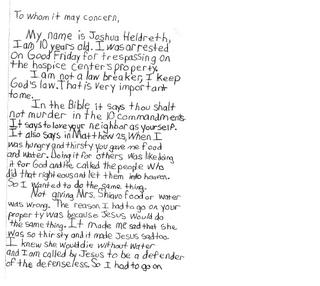 To whom it may concern,
My name is Joshua Heldreth,
I am 10 years old. I was arrested
on Good Friday for trespassing on
the hospice center's property.
I am not a law breaker, I keep
God's law. That is very important
to me.
In the Bible it says thou shalt
not murder in the 10 commandments.
It says to love your neighbor as yourself.
It also says in Matthew 25, When I
was hungry and thirsty you gave me food
and water. Doing it for others was like doing
it for God and He called the people who
did that righteous and let them into heaven.
So I wanted to do the same thing.
Not giving Mrs. Shiavo food or water
was wrong. The reason I had to go on your
property was because Jesus would do
the same thing. It made me sad that she
was so thirsty and it made Jesus sad too.
I knew she would die without water
and I am called by Jesus to be a defender
of the defenseless. So I had to go on